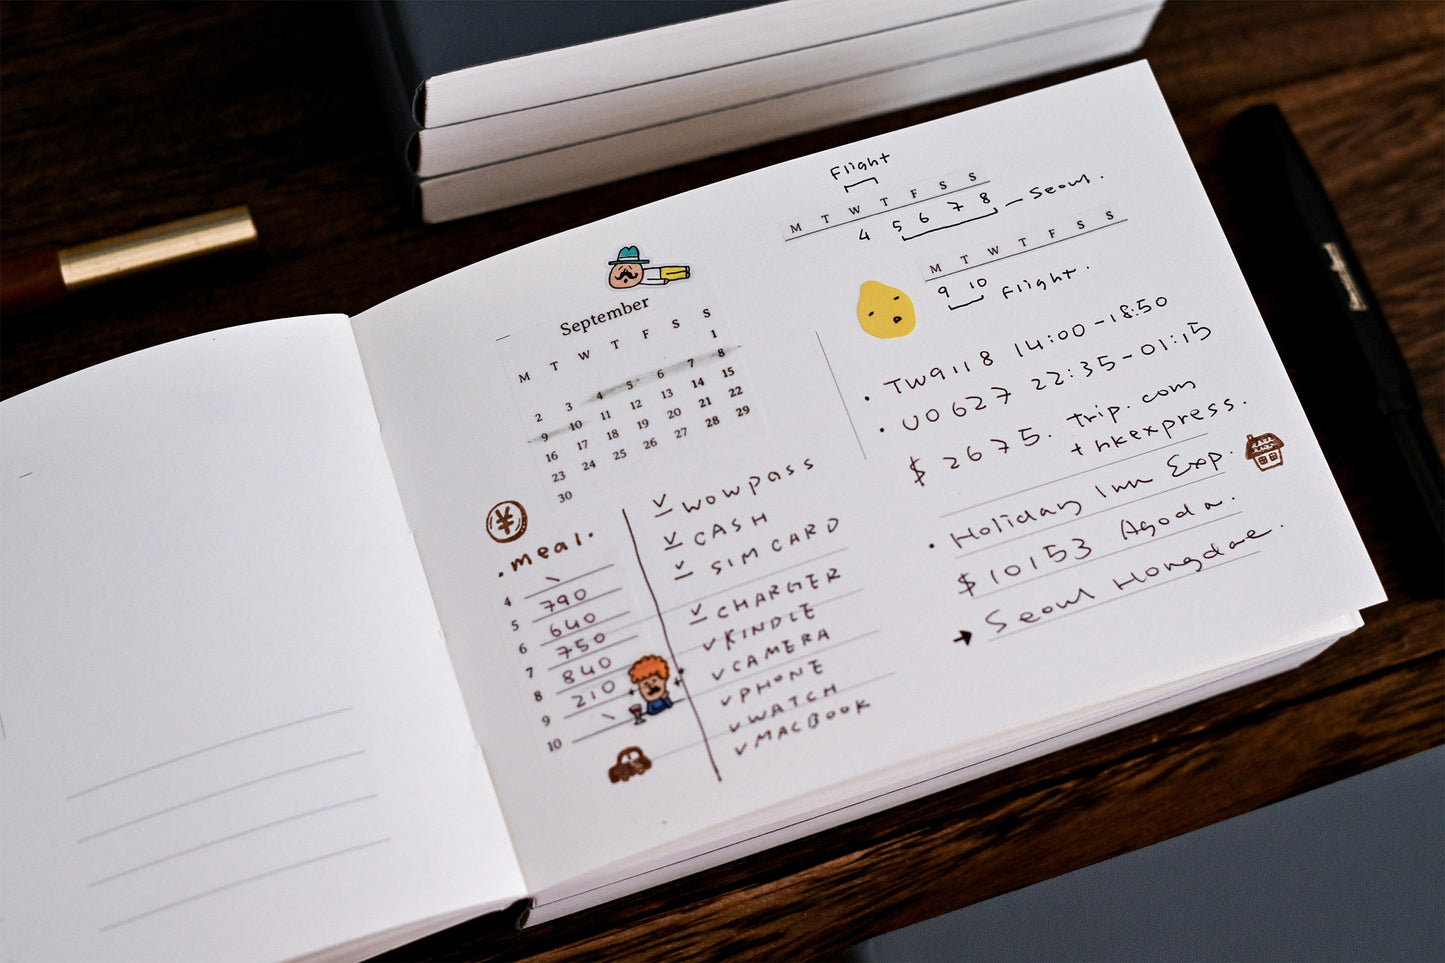 September
M T W T F S S
1
2 3 4 5 6 7 8
9 10 11 12 13 14 15
16 17 18 19 20 21 22
23 24 25 26 27 28 29
30
¥
· meal ·
4 \
5 790
6 640
7 750
8 840
9 210
10 \
✓ WOWPASS
✓ CASH
✓ SIM CARD
✓ CHARGER
✓ KINDLE
✓ CAMERA
✓ PHONE
✓ WATCH
✓ MACBOOK
Flight
M T W T F S S
4 5 6 7 8 — Seoul.
M T W T F S S
9 10 Flight.
· TW9118 14:00-18:50
· UO627 22:35-01:15
$ 2675. trip.com
+ hkexpress.
· Holiday Inn Exp.
$10153 Agoda.
→ Seoul Hongdae.